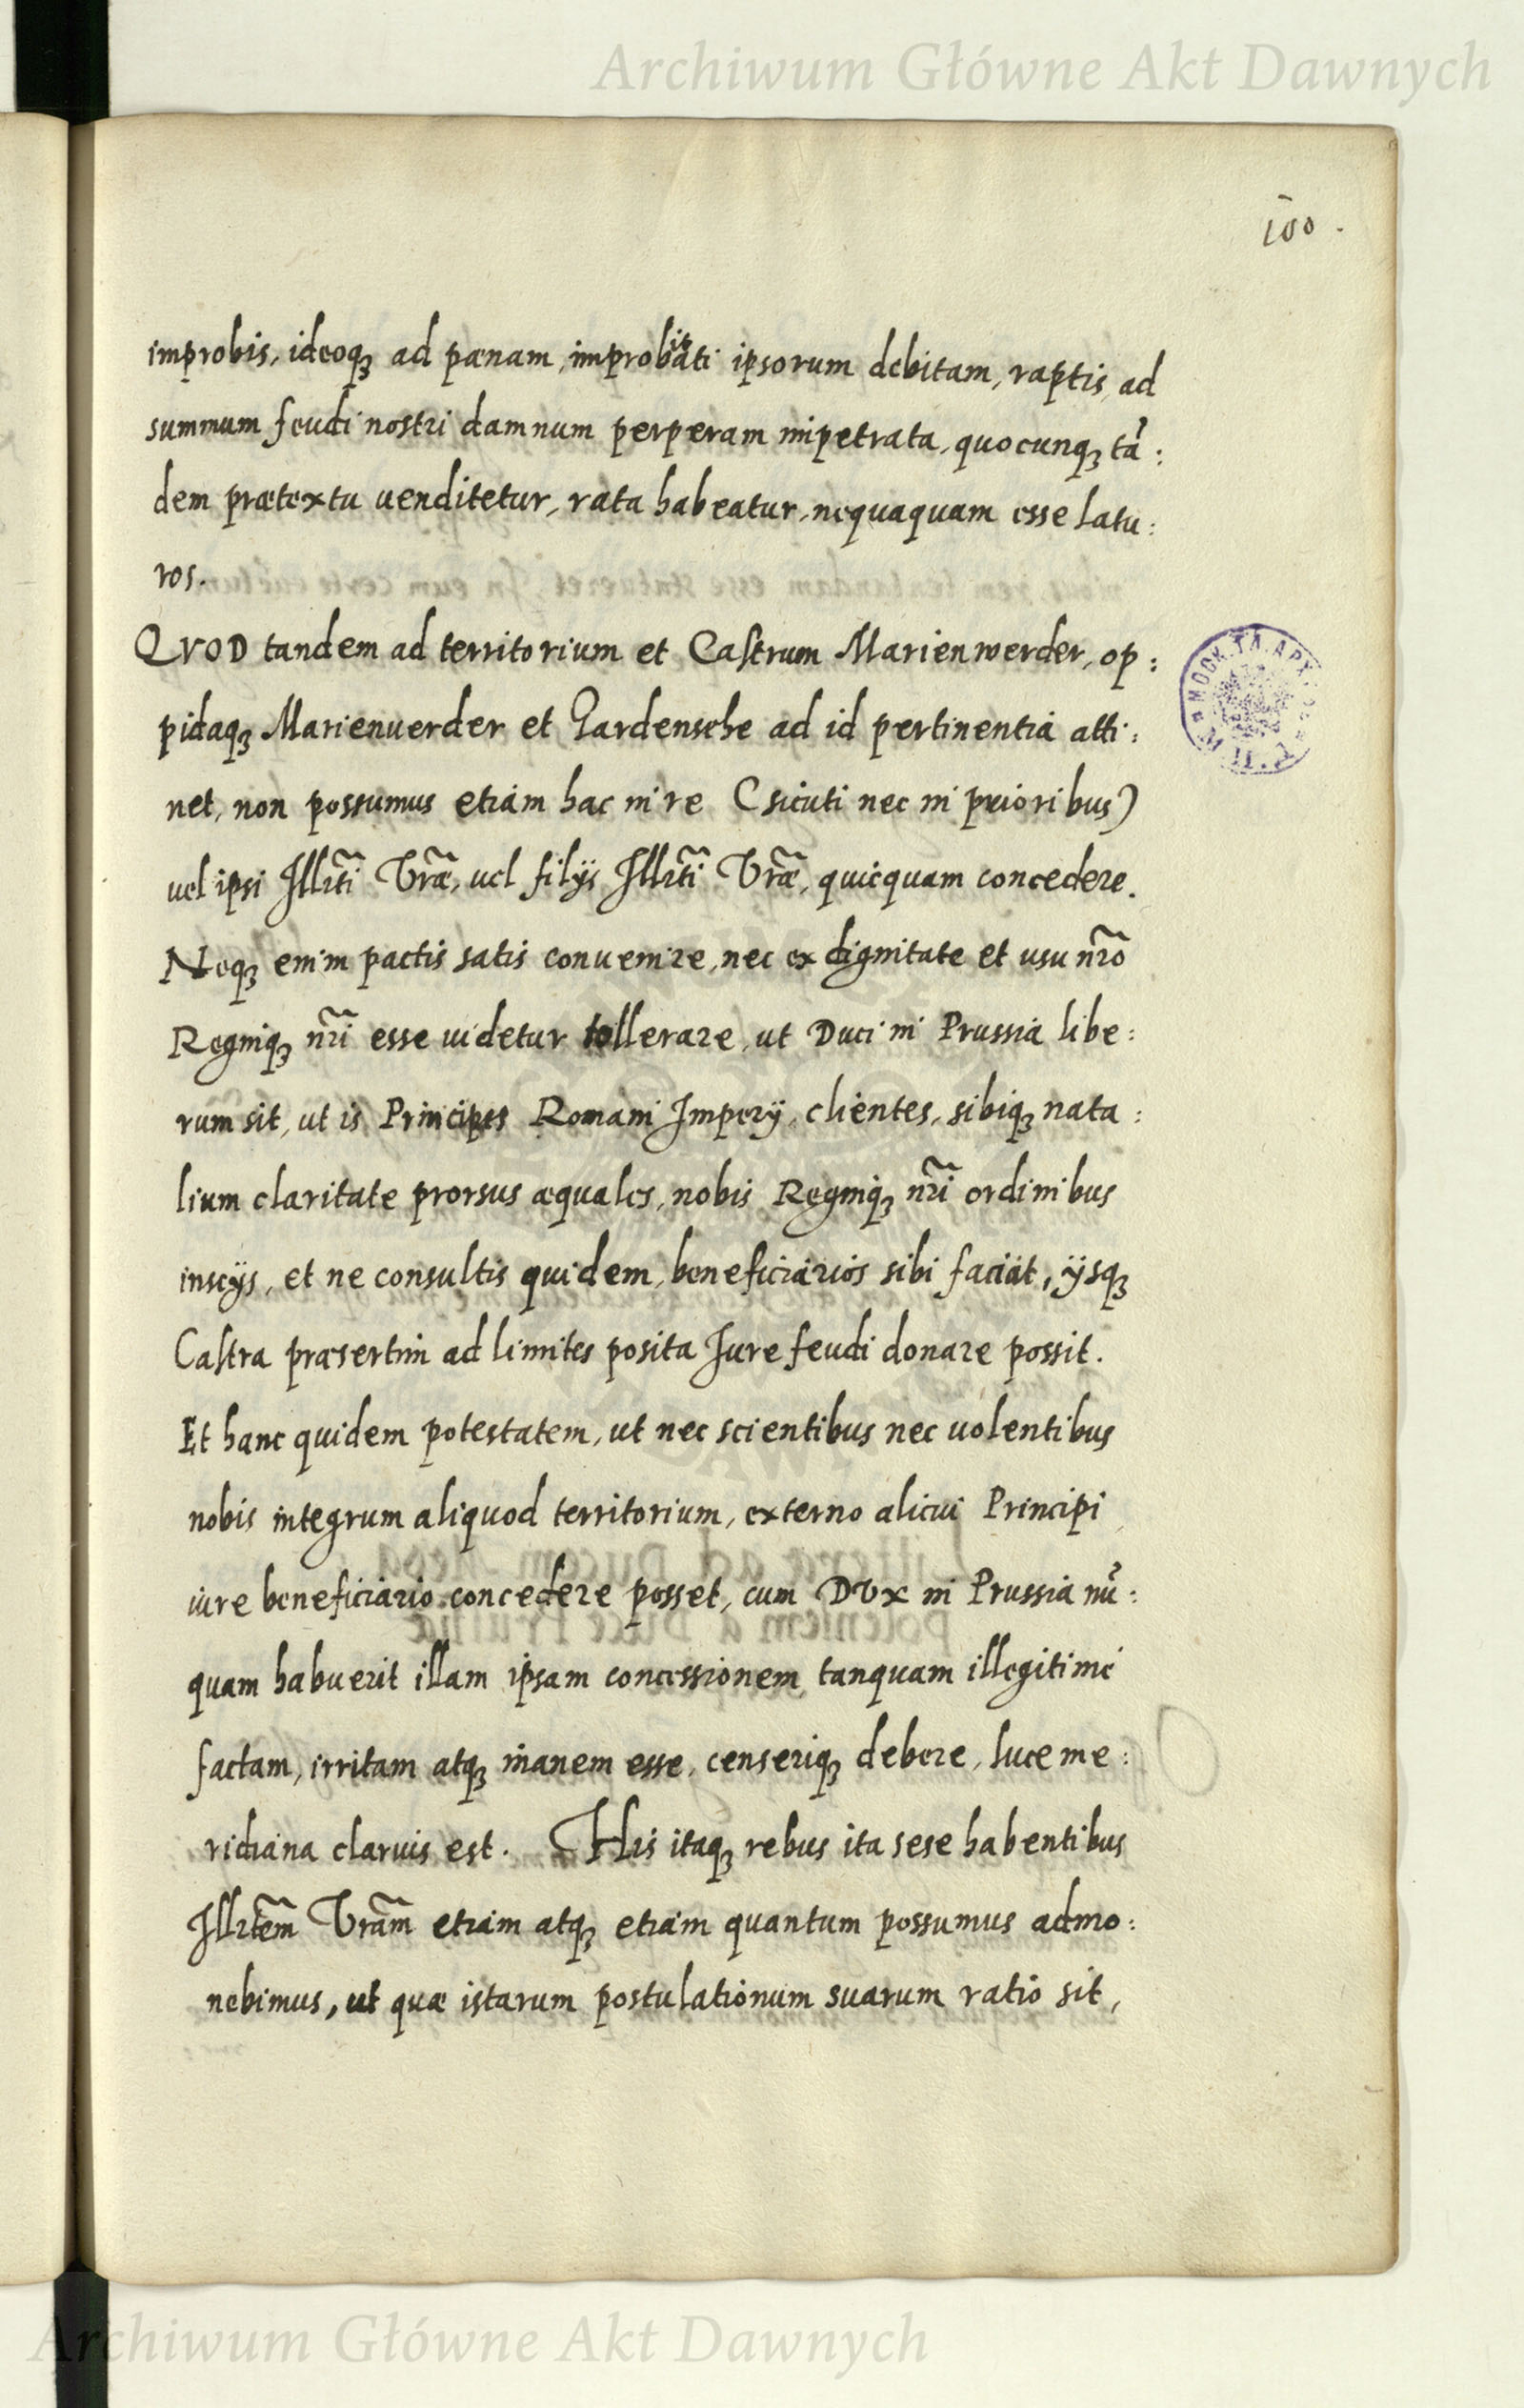 Archiwum Główne Akt Dawnych
100.
improbis, ideoqꝫ ad pœnam, improbitati ipsorum debitam, raptis, ad
summum feudi nostri damnum perperam impetrata, quocunqꝫ tã:
dem prætextu uenditetur, rata habeatur, nequaquam esse latu:
ros.
QVOD tandem ad territorium et Castrum Marienwerder, op:
pidaqꝫ Marienuerder et Gardensehe ad id pertinentia atti:
net, non possumus etiam hac in re (sicuti nec in prioribus)
uel ipsi Illr̃ti Vr̃æ, uel filijs Illr̃ti Vr̃æ, quicquam concedere.
Neqꝫ enim pactis satis conuenire, nec ex dignitate et usu nr̃o
Regniqꝫ nr̃i esse uidetur tollerare, ut Duci in Prussia libe:
rum sit, ut is Principes Romani Imperij, clientes, sibiqꝫ nata:
lium claritate prorsus æquales, nobis Regniqꝫ nr̃i ordinibus
inscijs, et ne consultis quidem, beneficiarios sibi faciat, ijsqꝫ
Castra præsertim ad limites posita Iure feudi donare possit.
Et hanc quidem potestatem, ut nec scientibus nec uolentibus
nobis integrum aliquod territorium, externo alicui Principi
iure beneficiario concedere posset, cum DVX in Prussia nũ:
quam habuerit illam ipsam concessionem tanquam illegitime
factam, irritam atqꝫ inanem esse, censeriqꝫ debere, luce me:
ridiana clarius est. His itaqꝫ rebus ita sese habentibus
Illr̃tem Vr̃am etiam atqꝫ etiam quantum possumus admo:
nebimus, ut quæ istarum postulationum suarum ratio sit,
Archiwum Główne Akt Dawnych